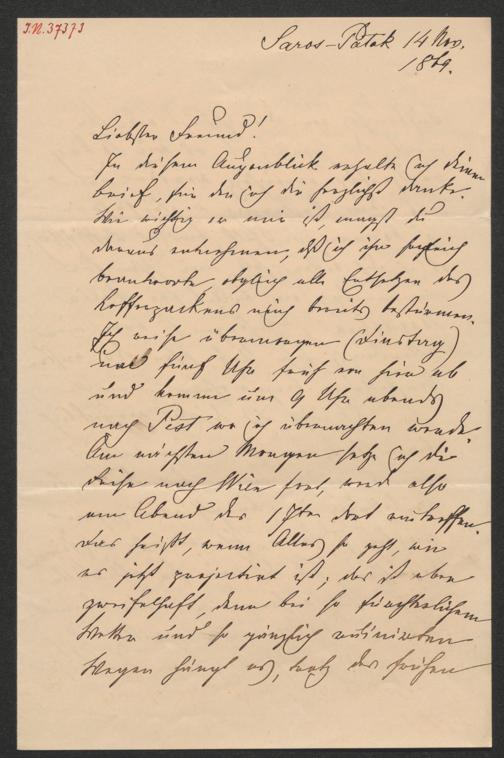 I.N. 37373
Saros-Patak 14 Nov.
1869.
Liebster Freund!
In diesem Augenblick erhalte ich deinen
Brief, für den ich dir herzlichst danke.
Wie wichtig er mir ist, magst du
daraus entnehmen, daß ich ihn sogleich
beantworte, obgleich alle Entsetzen des
Kofferpackens mich bereits bestürmen.
Ich reise übermorgen (Dinstag)
um fünf Uhr früh von hier ab
und komme um 9 Uhr abends
nach Pest wo ich übernachten werde.
Am nächsten Morgen setze ich die
Reise nach Wien fort, werde also
am Abend des 17ten dort eintreffen.
Das heißt, wenn Alles so geht, wie
es jetzt projectirt ist; das ist aber
zweifelhaft, denn bei so fürchterlichem
Wetter und so gänzlich ruinirten
Wegen hängt es, trotz der frühen